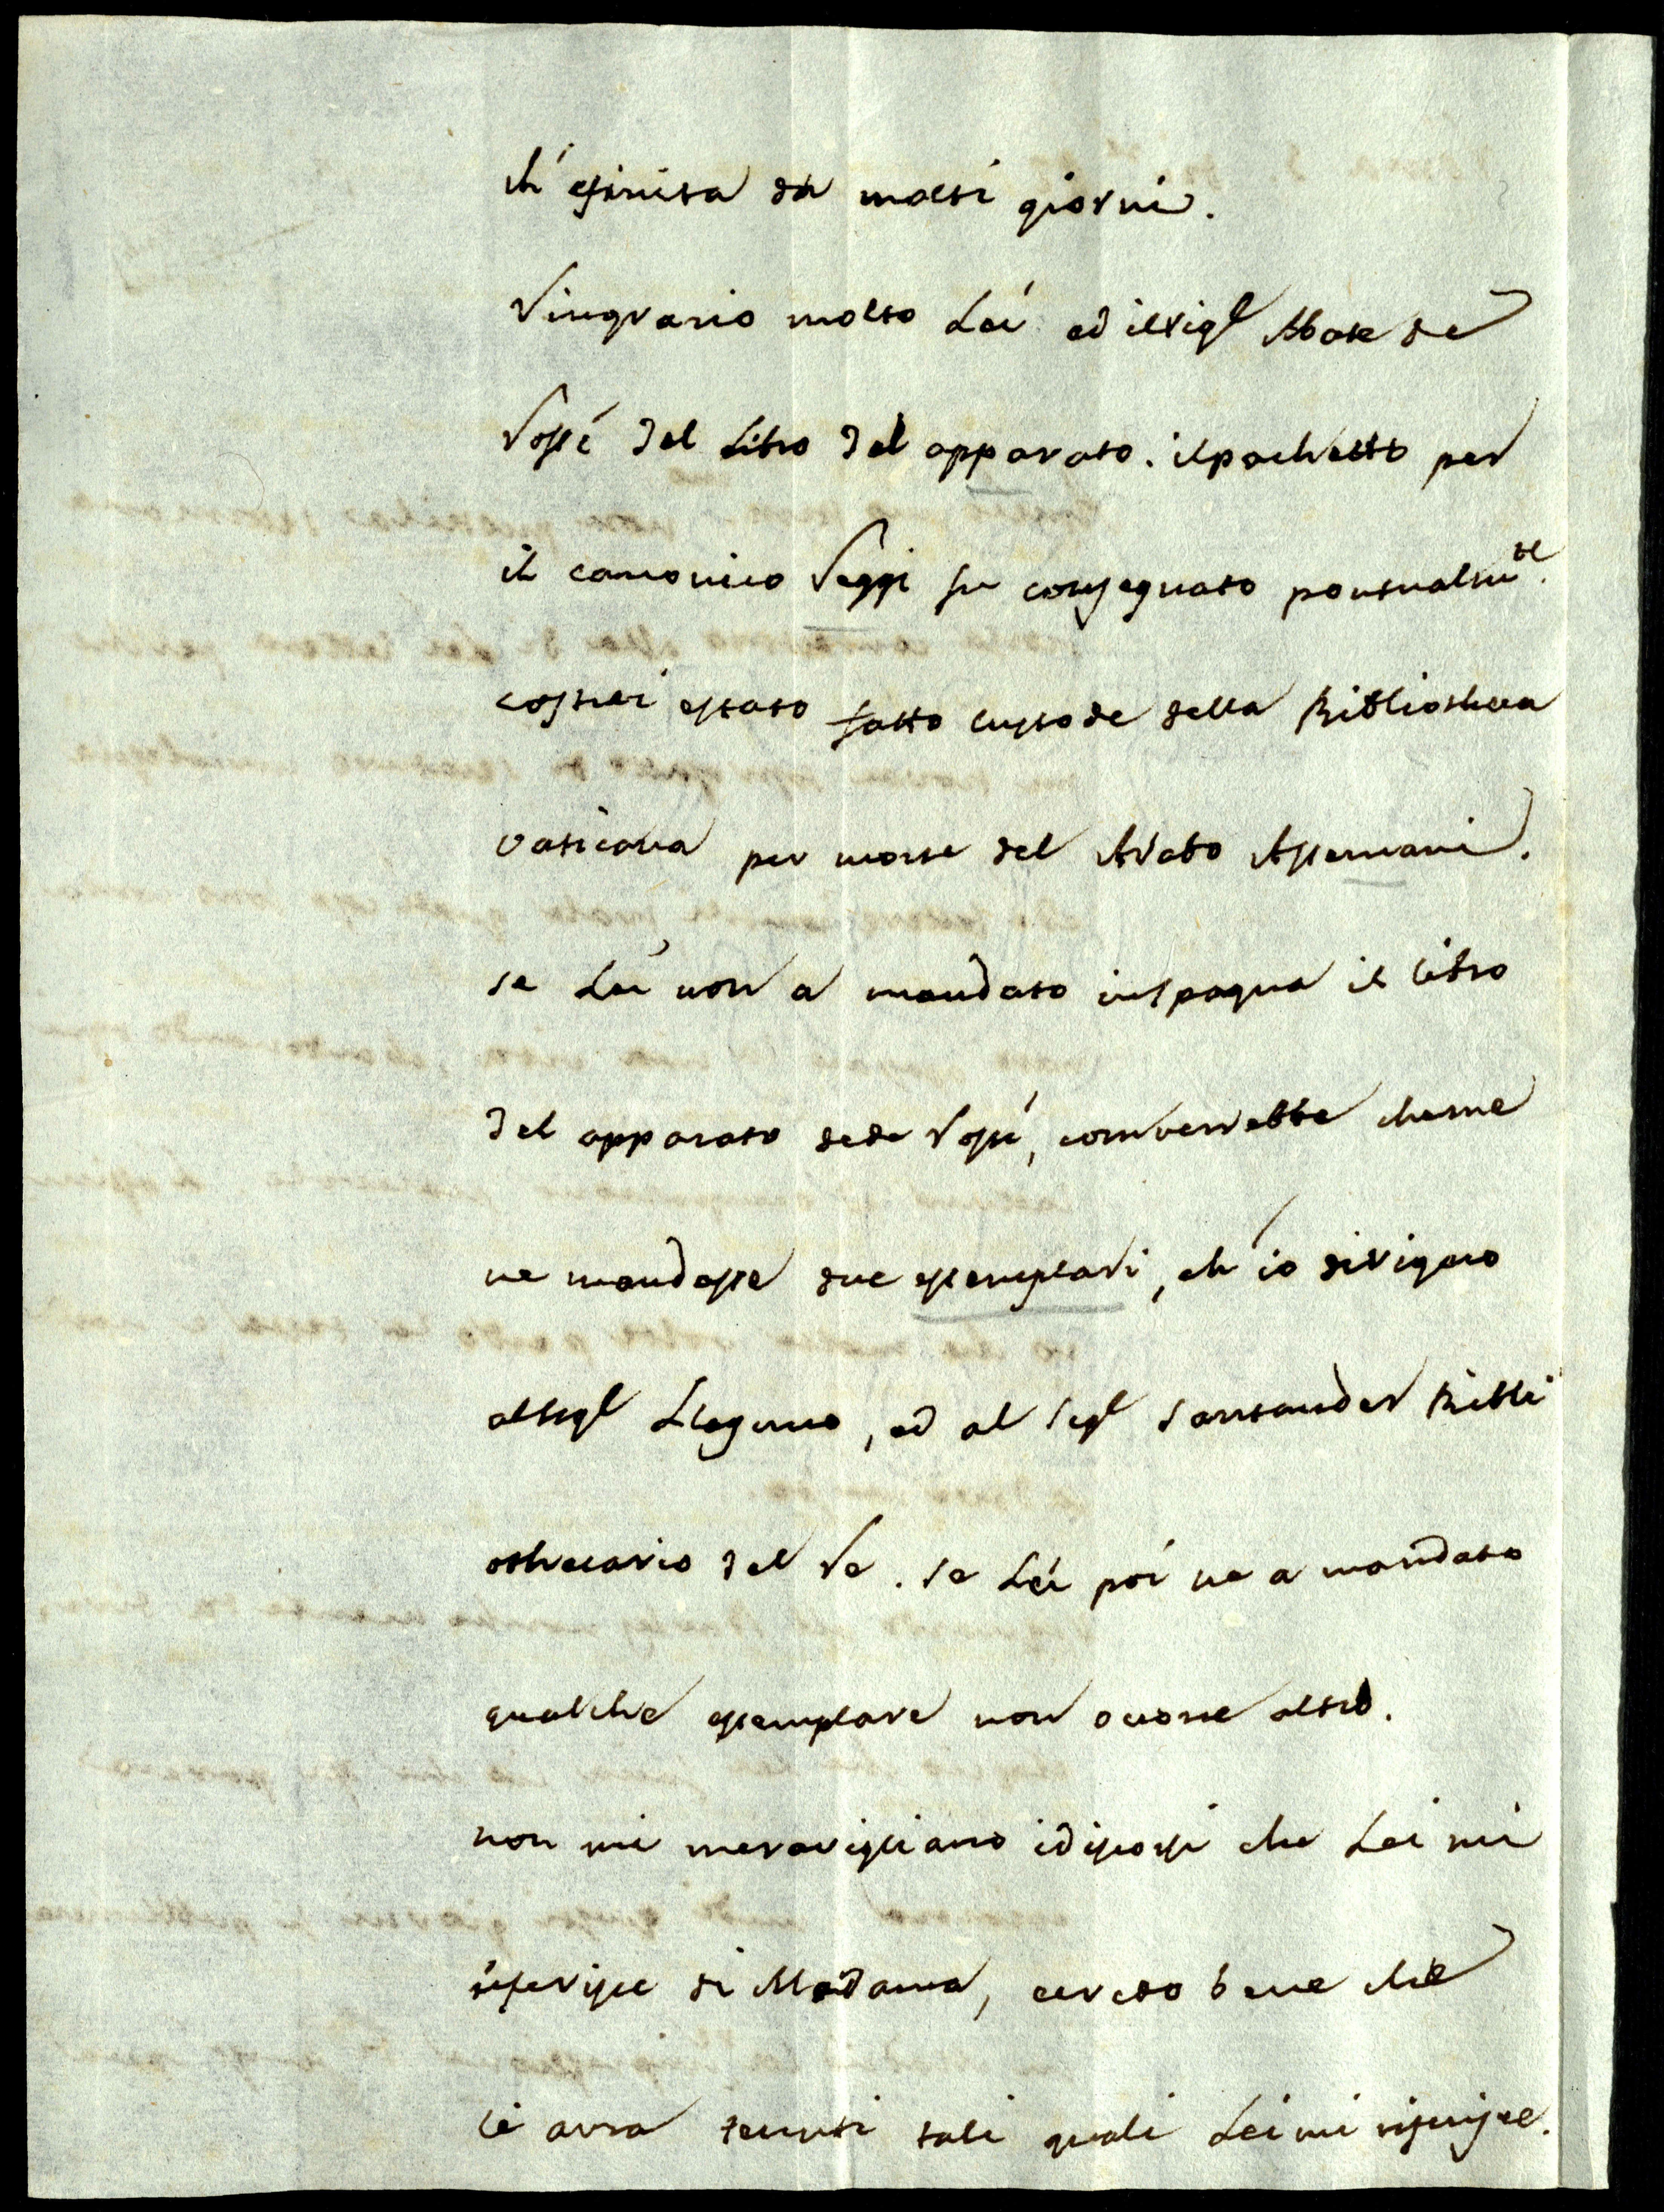 ch' e finita da molti giorni.
Ringrazio molto Lei ed il Sigl Abate de
Rossi del Libro del apparato. il pachetto per
il canonico Reggi fu consegnato pontualmte.
costui e stato fatto custode della Bibliotheca
vaticana per morte del Arabo Assemani.
se Lei non a mandato in spagna il libro
del apparato de de Rossi, converrebbe che me
ne mandasse due essemplari, ch' io dirigero
al Sigl Llaguno, ed al Sigl Santander Bibli
othecario del Re. se Lei poi ne a mandato
qualche essemplare non ocorre altro.
non mi meravigliano i discorsi che Lei mi
riferisce di Madama, ceredo bene che
li avra tenuti tali quali Lei mi riferisce.